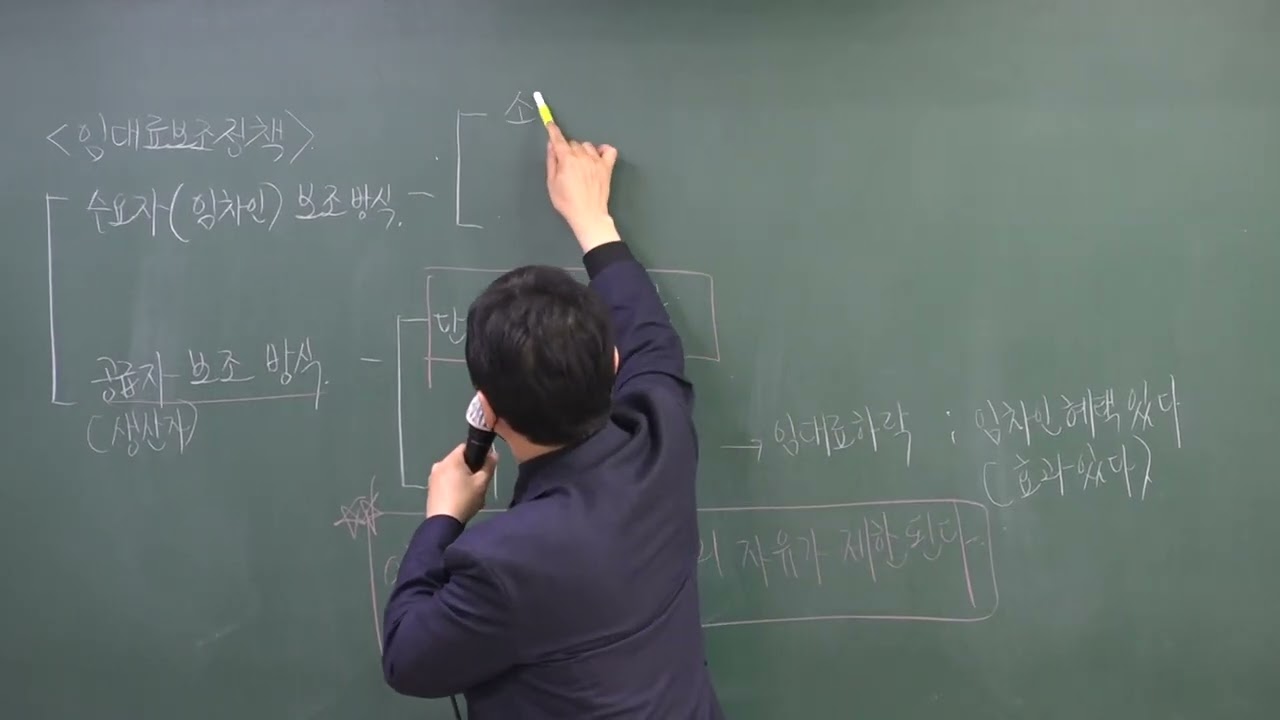 <임대료보조정책>
수요자(임차인) 보조방식. - 소
단
공급자 보조 방식. -
(생산자)
→ 임대료하락 ; 임차인혜택있다
(효과있다)
자유가 제한된다.